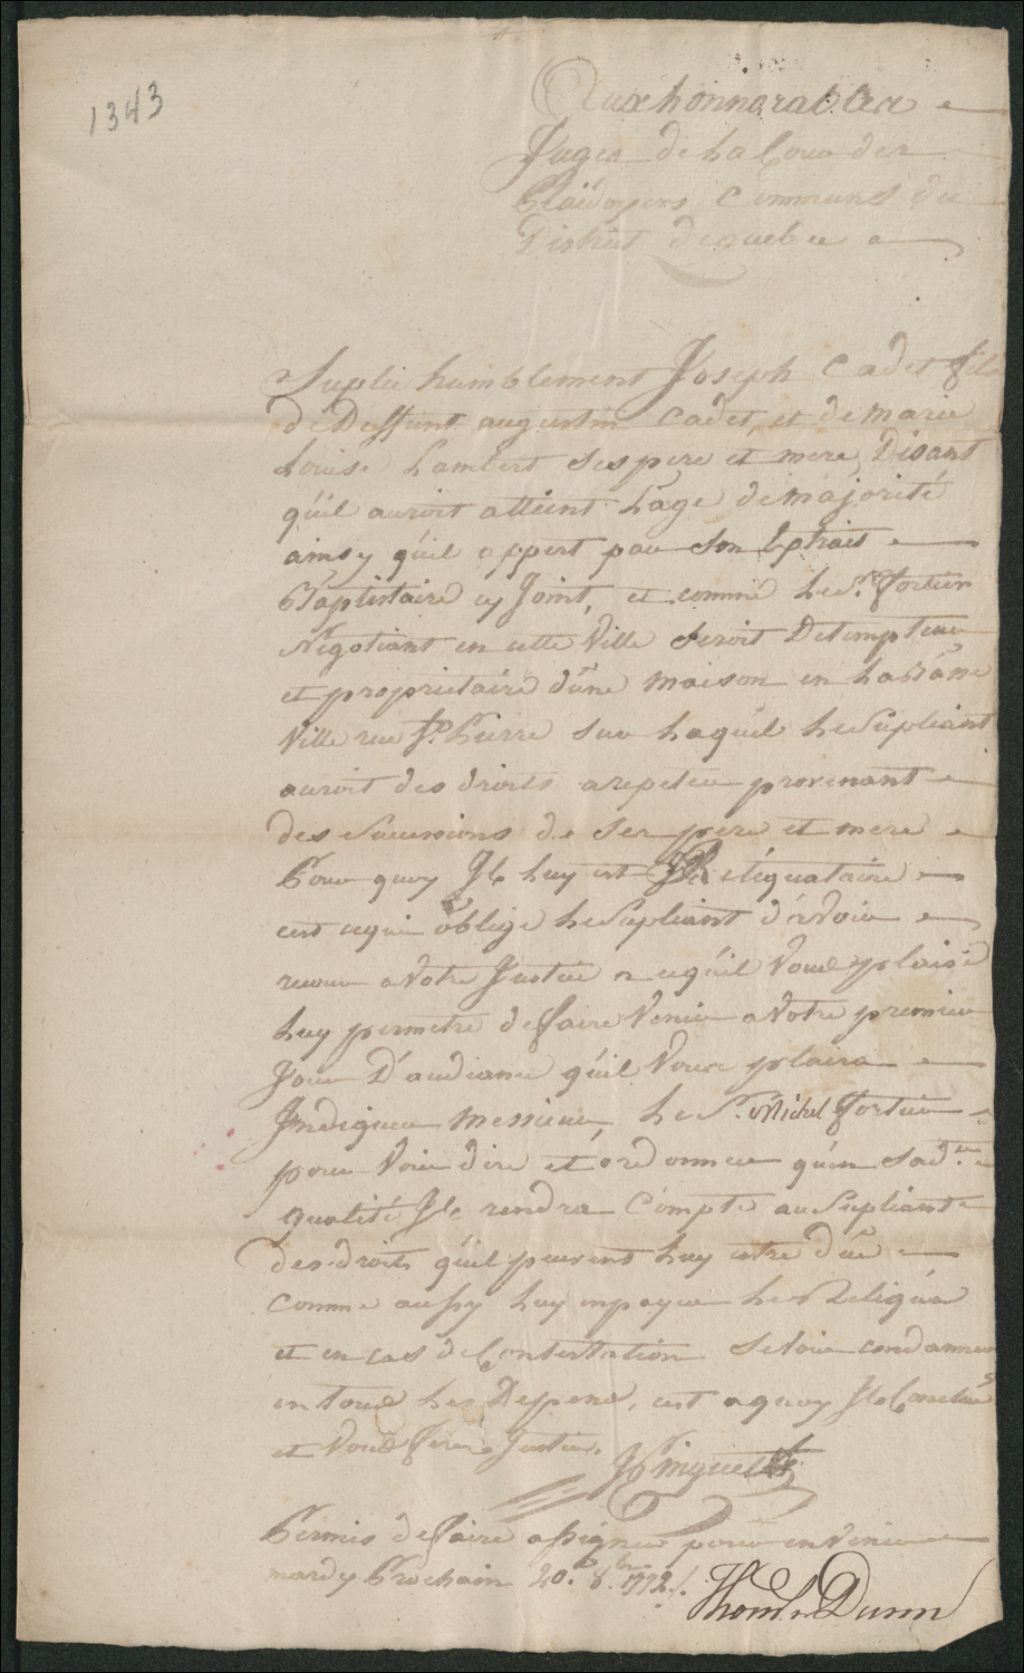 1343
Aux honnorables
Juges de La Cour des
Plaidoyers Communs du
District de quebec
Suplie humblement Joseph Cadet fils
de Deffunt augustin Cadet, et de marie
Louise Lambert ses pere et mere, Disant
qu'il auroit atteint L'age de majorité
ainsy qu'il appert par son Extrait
Baptistaire cy Joint, et comme Le Sr. fortier
Negotiant en cette Ville seroit Detempteur
et proprietaire d'une maison en La Basse
Ville rue St. Pierre sur Laquel Le Supliant
auroit des droits a repeter provenant
des sucessions de ses pere et mere
Pour quoy Il Luy est Reliquataire
cest ce qui oblige Le Supliant d'avoir
recour a Votre Justice a ce qu'il Vous plaise
Luy permetre de faire Venir a Votre premier
Jour D'audiance qu'il Vous plaira
Indiquer messieurs, Le Sr. Michel fortier
pour Voir dire et ordonner qu'en sad.te
qualité Il rendra Compte au Supliant
des droits qu'il peuvent Luy estre dûe
comme aussy Luy en payer Le Reliqua
et en cas de Contestation se Voir condamner
en tous Les Depens, cest a quoy Il Conclud
et Vous ferez Justice.
JPinguet
Permis de faire assigner pour en Venir
mardy Prochain 20. 8.bre 1772./.
Thoms Dunn